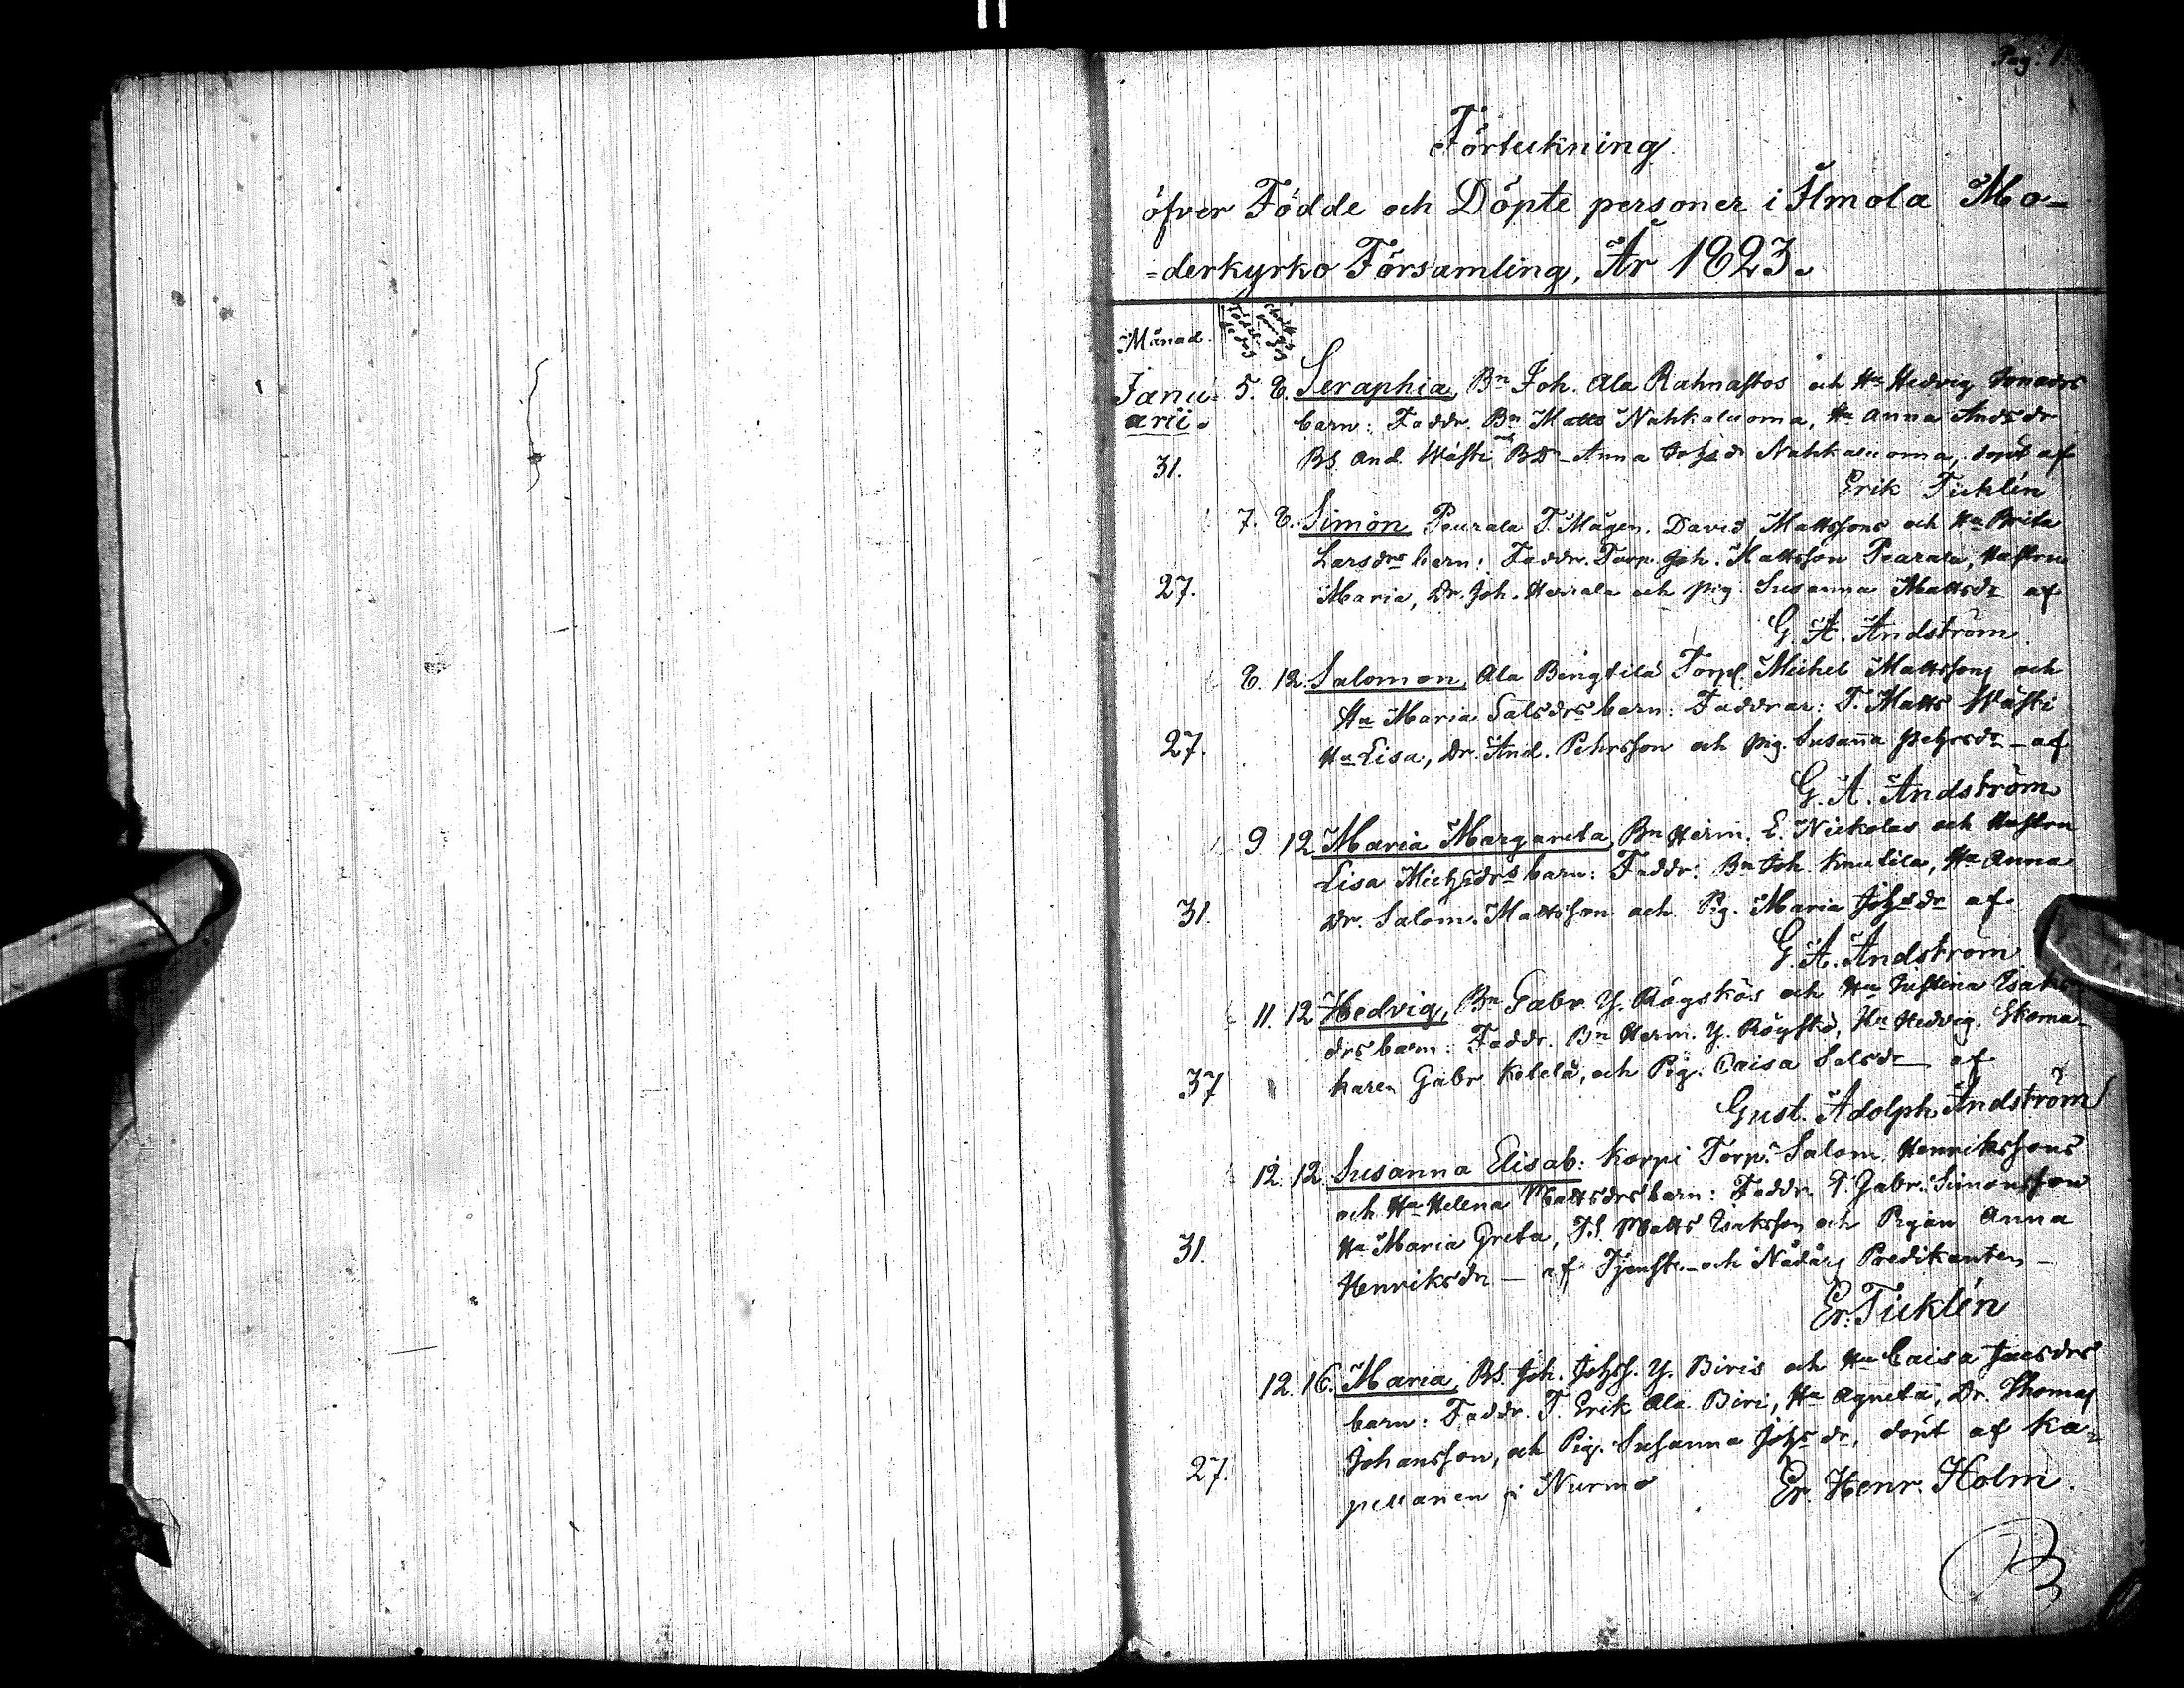 Pag: 1
Förteckning
öfver Födde och Döpte personer i Ilmola Mo-
=derkyrko Församling, År 1823.
Månad.
Janu- 5. 8. Seraphia, Bn Joh. Ala Rahnastos och Hu Hedvig
arii. barn: Faddr. Bn Matts Nahkaluoma, Hu Anna Andsdr
31. BS. And. Wästi och BD Anna Johsdr Nahkaluoma, döpt af
Erik Ticklén
7. 8. Simon, Peurala T. Mågen. David Mattssons och Hu Brita
Larsdrs barn: Faddr. Torp. Joh. Mattsson Peurala, Hustrun
27. Maria, Dr. Joh. Heirala och pig. Susanna Mattsdr af
G. A. Andström
8. 12. Salomon, Ala Bengtilä Torp. Michel Mattssons och
Hu Maria Salsdrs barn: Faddrar: T. Matts Wästi
27. Hu Lisa, Dr. And. Pehrsson och pig. Susanna Pehrsdr - af
G. A. Andström
9 12 Maria Margareta, Bn Herm. L. Nickolas och Hustru
Lisa Michsdrs barn: Faddr: Bn Joh. Knutila, Hu Anna
31. Dr. Salom. Mattsson och Pig. Maria Johsdr af
G. A. Andström
11. 12 Hedvig, Bn Gabr. Y. Rögskös och Hu Justina Isaks
drs barn: Faddr. Bn Herm. Y. Rögskö, Hu Hedvig. Skoma-
37 karen Gabr Kolela, och Pig. Caisa Salsdr - af
Gust. Adolph Andström
12. 12 Susanna Elisab: Korpi Torp. Salom. Henrikssons
och Hu Helena Mattsdrs barn: Faddr. T. Gabr. Simonsson
31. Hu Maria Greta, T.S. Matts Isaksson och Pigan Anna
Henriksdr - af Tjenste- och Nådårs Predikanten -
Er. Ticklén
12. 16. Maria, BS. Joh. Johss. Y. Biris och Hu Caisa Jacsdrs
barn: Faddr. T. Erik Ala Biri, Hu Agneta, Dr. Thomas
Johansson, och Pig. Susanna Johsdr, döpt af Ka-
27. pellanen i Nurmo Er. Henr. Holm.